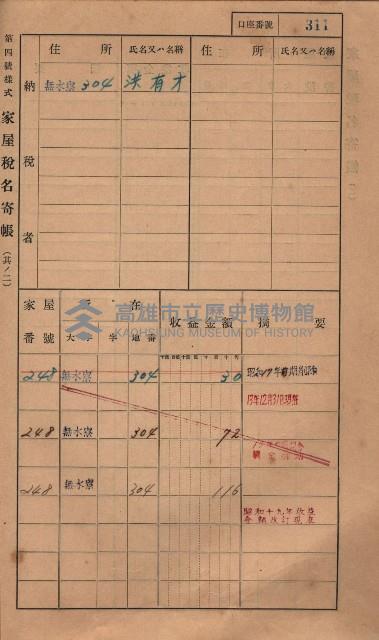 口座番號 311
第四號樣式 家屋稅名寄帳 (其ノ二)
住所 氏名又ハ名稱 住所 氏名又ハ名稱
納稅者
無水寮 304 洪有才
家屋番號 所在 大字 字 地番 收益金額 摘要
248 無水寮 304 30 昭和17年
18年12月31日現在
248 無水寮 304 72
248 無水寮 304 116
昭和十九年改在
高雄市立歷史博物館
KAOHSIUNG MUSEUM OF HISTORY